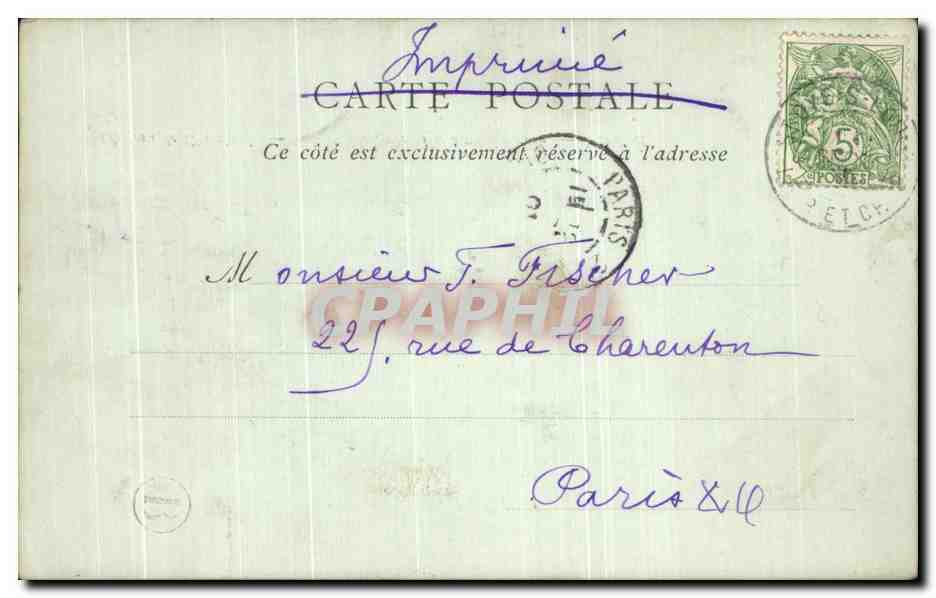 Imprimé
CARTE POSTALE
Ce côté est exclusivement réservé à l'adresse
5
POSTES
PARIS
ET CH
Monsieur T. Fischer
CPARHIL
225, rue de Charenton
Paris